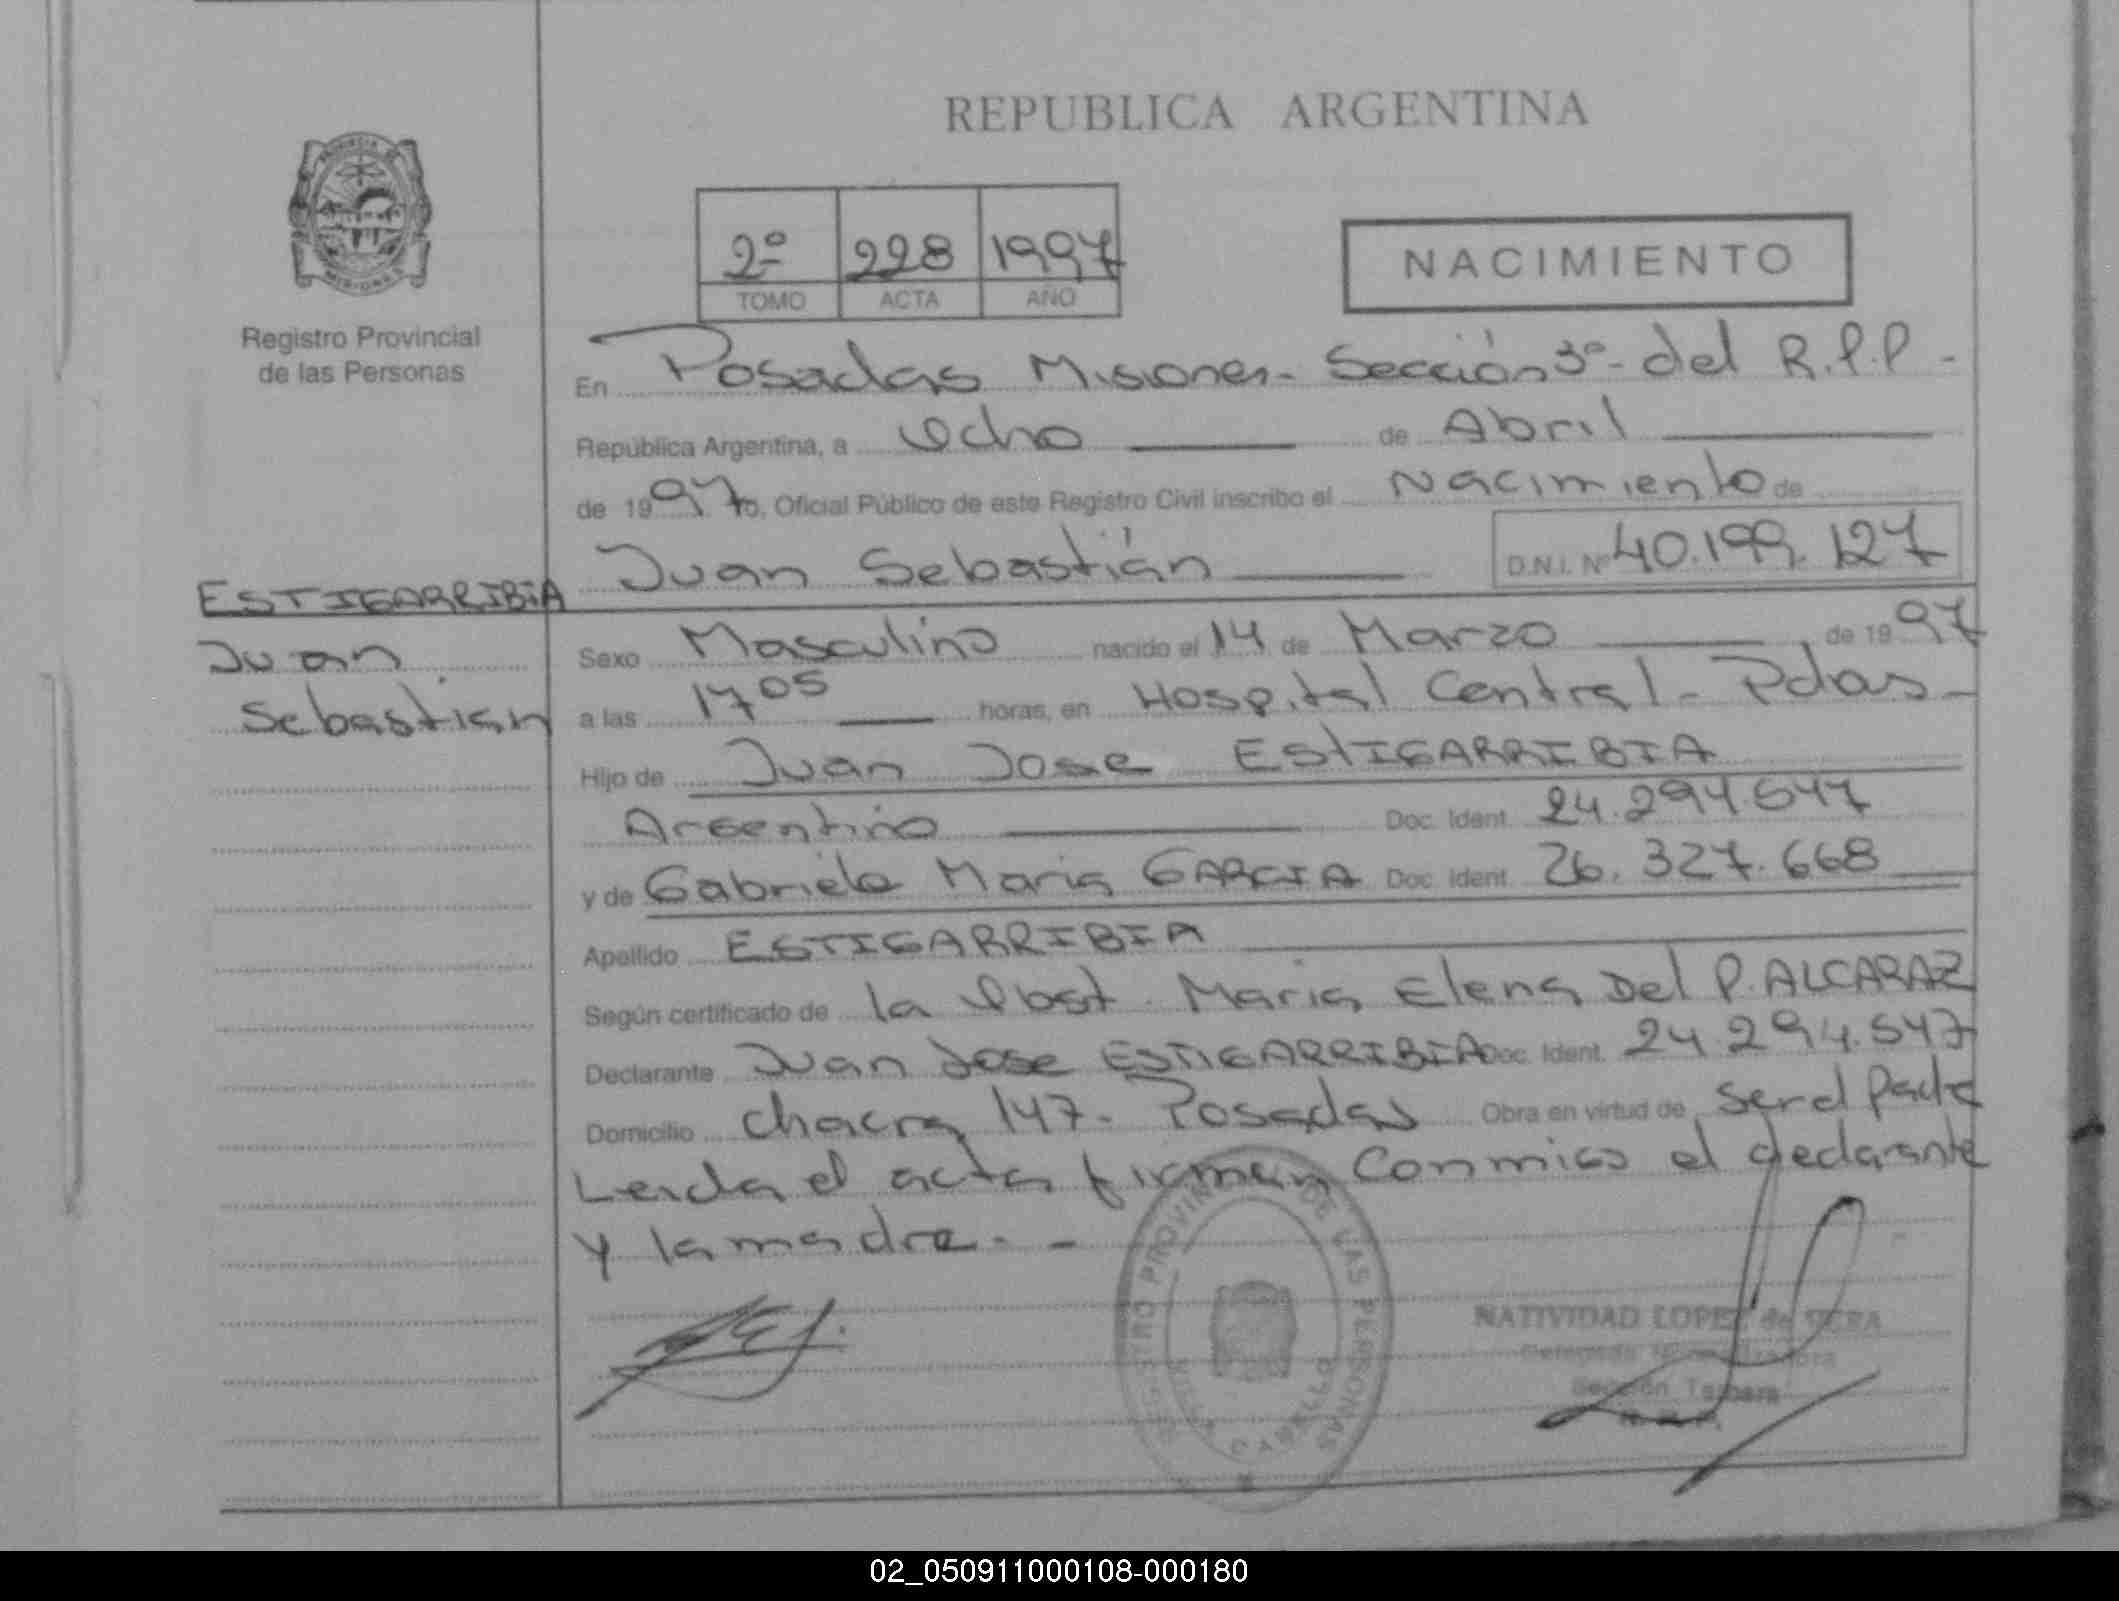 REPUBLICA ARGENTINA
Registro Provincial
de las Personas
2º 228 1997
TOMO ACTA AÑO
NACIMIENTO
En Posadas Misiones - Sección 3º - del R.P.P -
República Argentina, a ocho de Abril
de 1997 Yo, Oficial Público de este Registro Civil inscribo el Nacimiento de
Juan Sebastián D.N.I. Nº 40.199.127
ESTIGARRIBIA
Juan
Sebastian
Sexo Masculino nacido el 14 de Marzo de 1997
a las 17 05 horas, en Hospital Central - Pdas -
Hijo de Juan Jose ESTIGARRIBIA
Argentino Doc. Ident. 24.294.547
y de Gabriela Maria GARCIA Doc. Ident. 26.327.668
Apellido ESTIGARRIBIA
Según certificado de la Obst. Maria Elena Del P. ALCARAZ
Declarante Juan Jose ESTIGARRIBIA Doc. Ident. 24.294.547
Domicilio chacra 147 - Posadas Obra en virtud de ser el padre
Leida el acta firman conmigo el declarante
y la madre. -
REGISTRO PROVINCIAL DE LAS PERSONAS
NATIVIDAD LOPEZ de
Sección Tercera
02_050911000108-000180